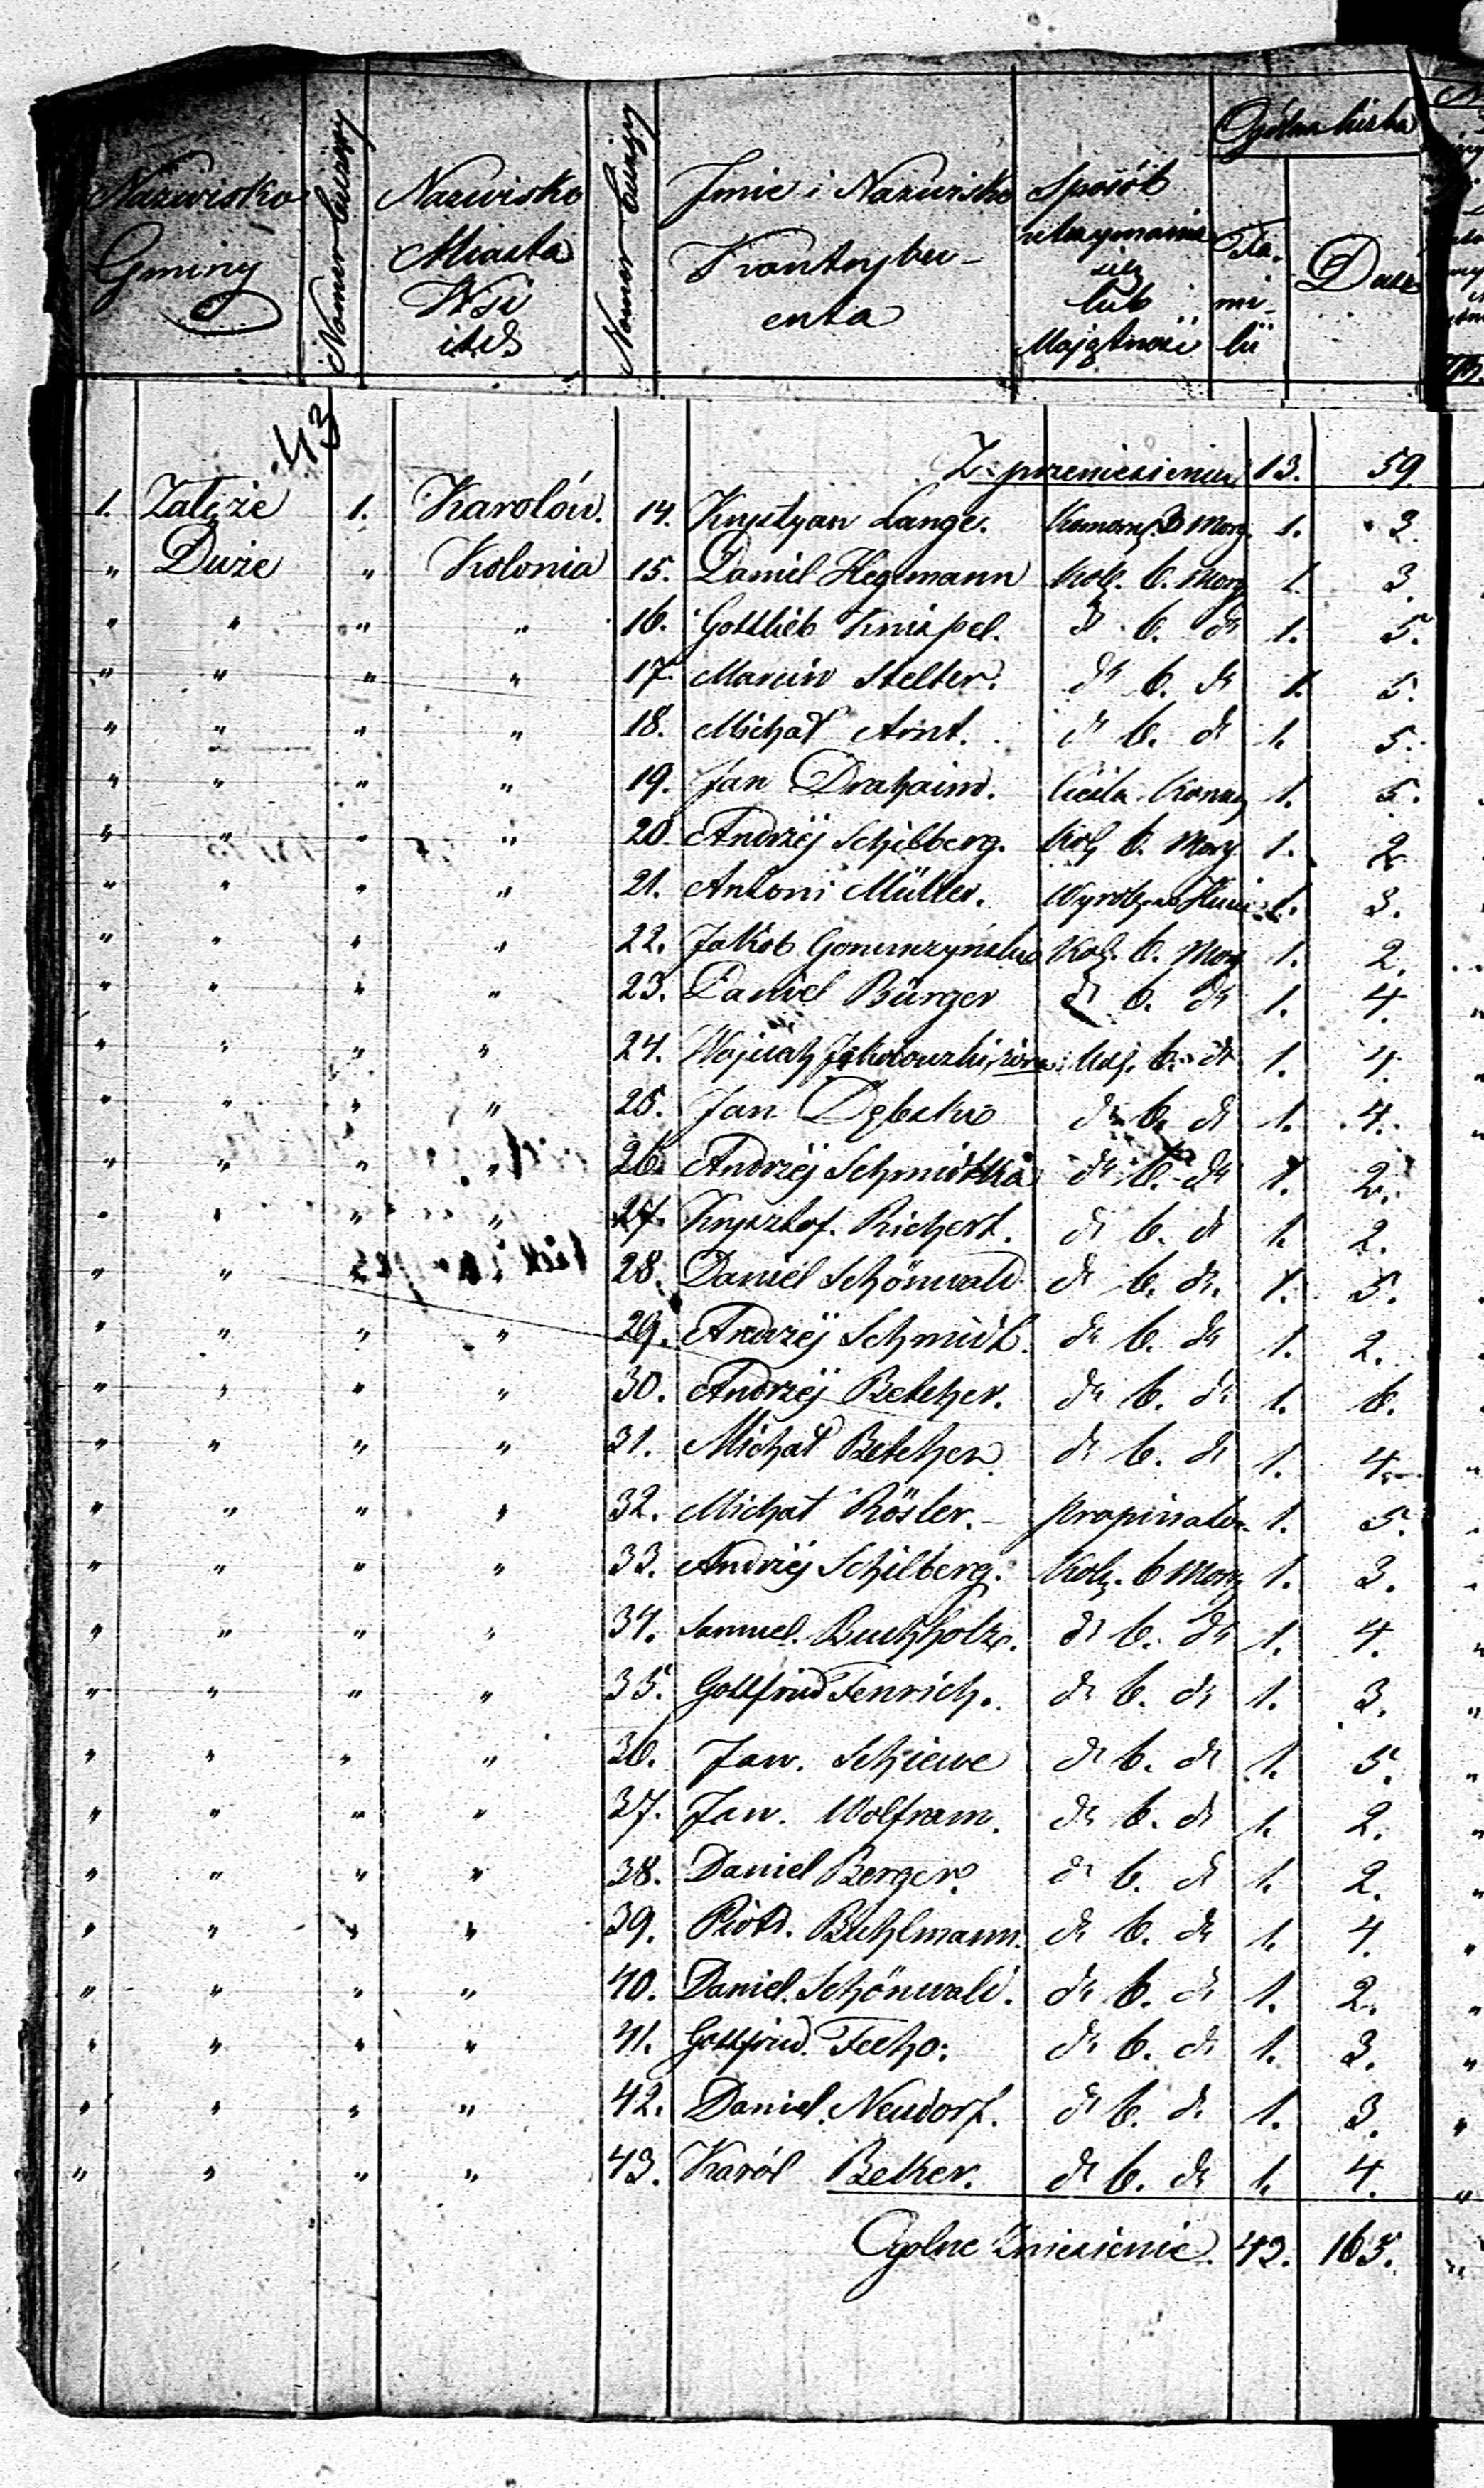 Nazwisko Gminy | Numer bieżący | Nazwisko Miasta Wsi itd | Numer bieżący | Jmie i Nazwisko Kontrybuenta | Sposób utrzymania się lub Majątności | Ogólna liczba | Familii | Dusz
43
Z przeniesienia | 13. | 59
1. | Załęże | 1. | Karolów. | 14. | Krystyan Lange. | Morg. | 1. | 3.
" | Duże | " | Kolonia | 15. | Daniel Hegemann | Kol. 6. Morg | 1. | 3.
" | " | " | " | 16. | Gottlieb Knispel. | d 6. dt | 1. | 5.
" | " | " | " | 17. | Marcin Stelter. | dt 6. dt | 1. | 5.
" | " | " | " | 18. | Michał Arnt. | dt 6. dt | 1. | 5.
" | " | " | " | 19. | Jan Drahaim. | 1. | 5.
" | " | " | " | 20. | Andrzéj Schilberg. | Kol. 6. Morg. | 1. | 2
" | " | " | " | 21. | Antoni Müller. | 1. | 3.
" | " | " | " | 22. | Jakób | Kol. 6. Morg | 1. | 2.
" | " | " | " | 23. | Daniel Bürger | dt 6. dt | 1. | 4.
" | " | " | " | 24. | Wojciech | 6. dt | 1. | 4.
" | " | " | " | 25. | Jan Dębski | dt 6. dt | 1. | 4.
" | " | " | " | 26. | Andrzéj Schmidtka | dt 6. dt | 1. | 2.
" | " | " | " | 27. | Krysztof. Richert. | dt 6. dt | 1. | 2.
" | " | " | " | 28. | Daniel Schönwald | dt 6. dt. | 1. | 5.
" | " | " | " | 29. | Andrzéj Schmidt. | dt 6. dt | 1. | 2.
" | " | " | " | 30. | Andrzéj Betcher. | dt 6. dt | 1. | 6.
" | " | " | " | 31. | Michał Betcher. | dt 6. dt | 1. | 4.
" | " | " | " | 32. | Michał Röster. | propinator | 1. | 5.
" | " | " | " | 33. | Andrzéj Schilberg. | Kol. 6 Morg | 1. | 3.
" | " | " | " | 34. | Samuel. Buchholz. | dt 6. dt | 1. | 4.
" | " | " | " | 35. | Gottfried Fenrich. | dt 6. dt | 1. | 3.
" | " | " | " | 36. | Jan. Schiewe | dt 6. dt | 1. | 5.
" | " | " | " | 37. | Jan. Wolfram. | dt 6. dt | 1. | 2.
" | " | " | " | 38. | Daniel Berger. | dt 6. dt | 1. | 2.
" | " | " | " | 39. | Piotr. Buhlmann. | dt 6. dt | 1. | 4.
" | " | " | " | 40. | Daniel. Schönwald. | dt 6. dt | 1. | 2.
" | " | " | " | 41. | Gottfried. | dt 6. dt | 1. | 3.
" | " | " | " | 42. | Daniel. Neudorf. | dt 6. dt | 1. | 3.
" | " | " | " | 43. | Karól Beker. | dt 6. dt | 1. | 4.
Ogolne Zniesienie. | 43. | 165.